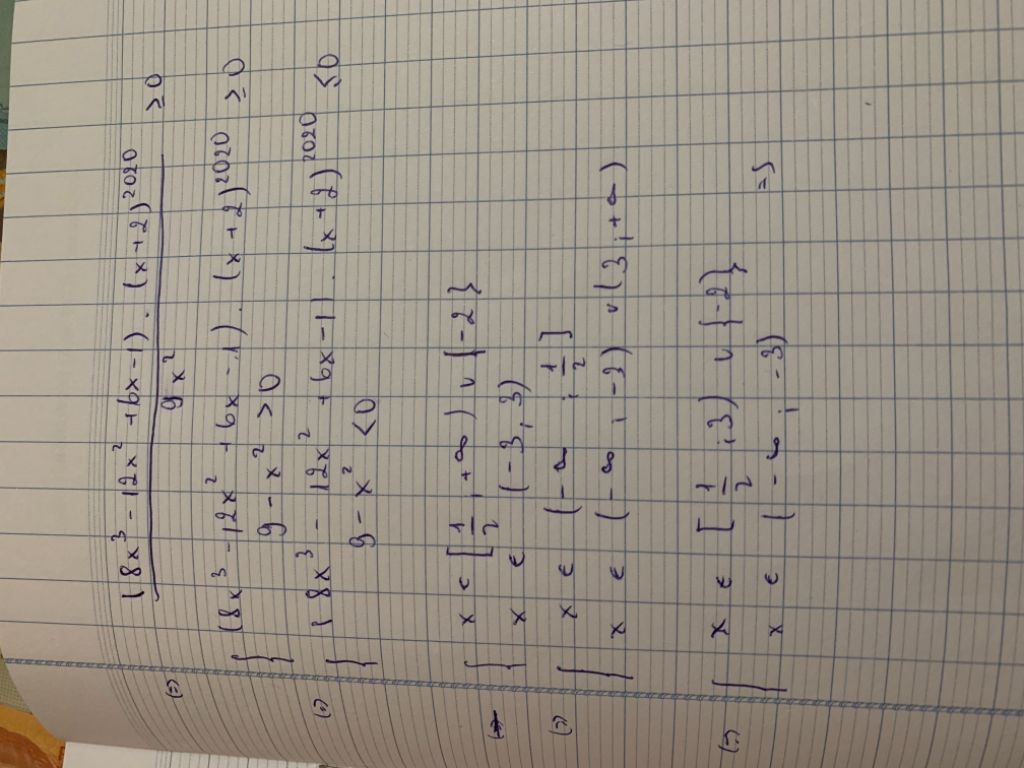 (8x³ - 12x² + 6x - 1) . (x + 2)²⁰²⁰
≥ 0
9 x²
(=) { (8x³ - 12x² + 6x - 1) . (x + 2)²⁰²⁰ ≥ 0
9 - x² > 0
(=) { (8x³ - 12x² + 6x - 1) . (x + 2)²⁰²⁰ ≤ 0
9 - x² < 0
{ x ∈ [1/2 , +∞) ∪ {-2}
x ∈ (-3 , 3)
(=) { x ∈ (-∞ ; 1/2]
x ∈ (-∞ , -3) ∪ (3 , +∞)
(=) [ x ∈ [1/2 , 3) ∪ {-2}
x ∈ (-∞ , -3) =>